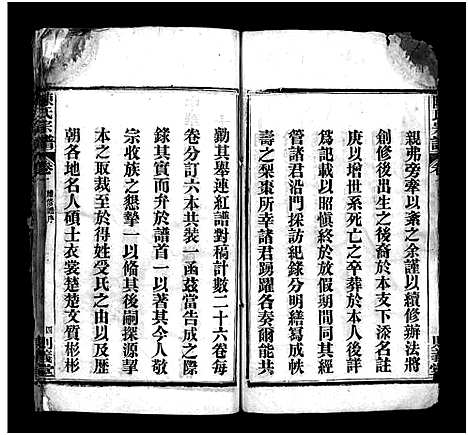 親弗旁牽以紊之余謹以續修辦法將
創修後出生之後裔於本支下添名註
庚以增世系死亡之卒葬於本人後詳
爲記載以昭愼終於前規模一致後賴
管諸君沿門採訪紀錄分明繕寫成帙
壽之梨棗所幸諸君踴躍各奏爾能共
勷其舉連紅譜對稿計數二十六卷每
卷分訂六本共裝一函茲當告成之際
錄其實而弁於譜首一以著其今人敬
宗收族之懇摯一以脩其後嗣探源挈
本之取裁至於得姓受氏之由以及歷
朝各地名人碩士衣裳楚楚文質彬彬
陳氏宗譜
卷一
四
則義堂